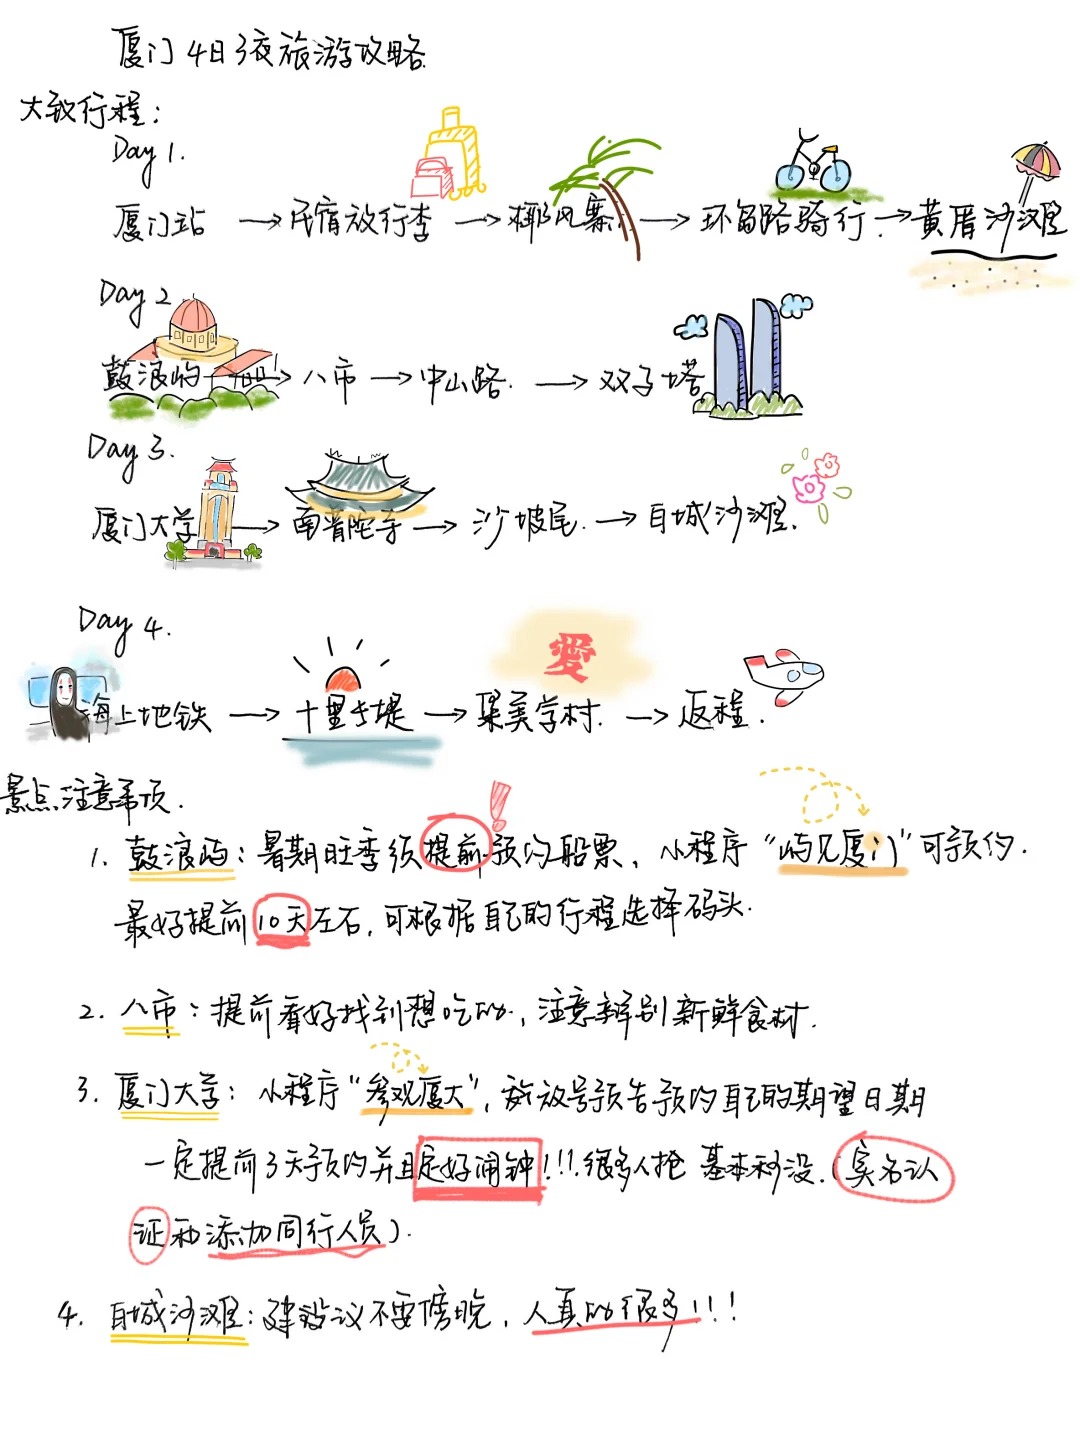 厦门4日3夜旅游攻略
大致行程：
Day 1.
厦门站 → 民宿放行李 → 椰风寨 → 环岛路骑行. → 黄厝沙滩
Day 2
鼓浪屿 → 八市 → 中山路. → 双子塔
Day 3.
厦门大学 → 南普陀寺 → 沙坡尾. → 白城沙滩.
Day 4.
愛
海上地铁 → 十里长堤 → 集美学村. → 返程.
景点注意事项.
1. 鼓浪屿：暑期旺季须提前预约船票，小程序“屿见厦门”可预约.
最好提前10天左右，可根据自己的行程选择码头.
2. 八市：提前看好找到想吃的，注意辨别新鲜食材.
3. 厦门大学：小程序“参观厦大”，放号预告预约自己的期望日期
一定提前3天预约并且定好闹钟!!!很多人抢 基本秒没.(实名认
证和添加同行人员).
4. 白城沙滩：建议不要傍晚，人真的很多!!!